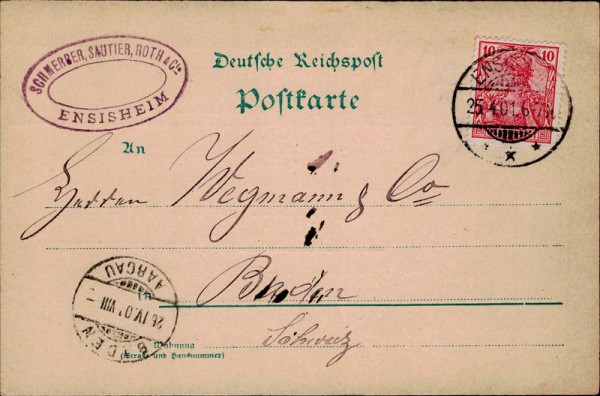 SCHMERBER, SAUTIER, ROTH & Cie
ENSISHEIM
Deutsche Reichspost
Postkarte
10 10
25.4.01.6-7N.
An
Herren Wegmann & Co
Baden
in
Schweiz
Wohnung
(Straße und Hausnummer)
AARGAU
26.IV.01 VIII -
BADEN